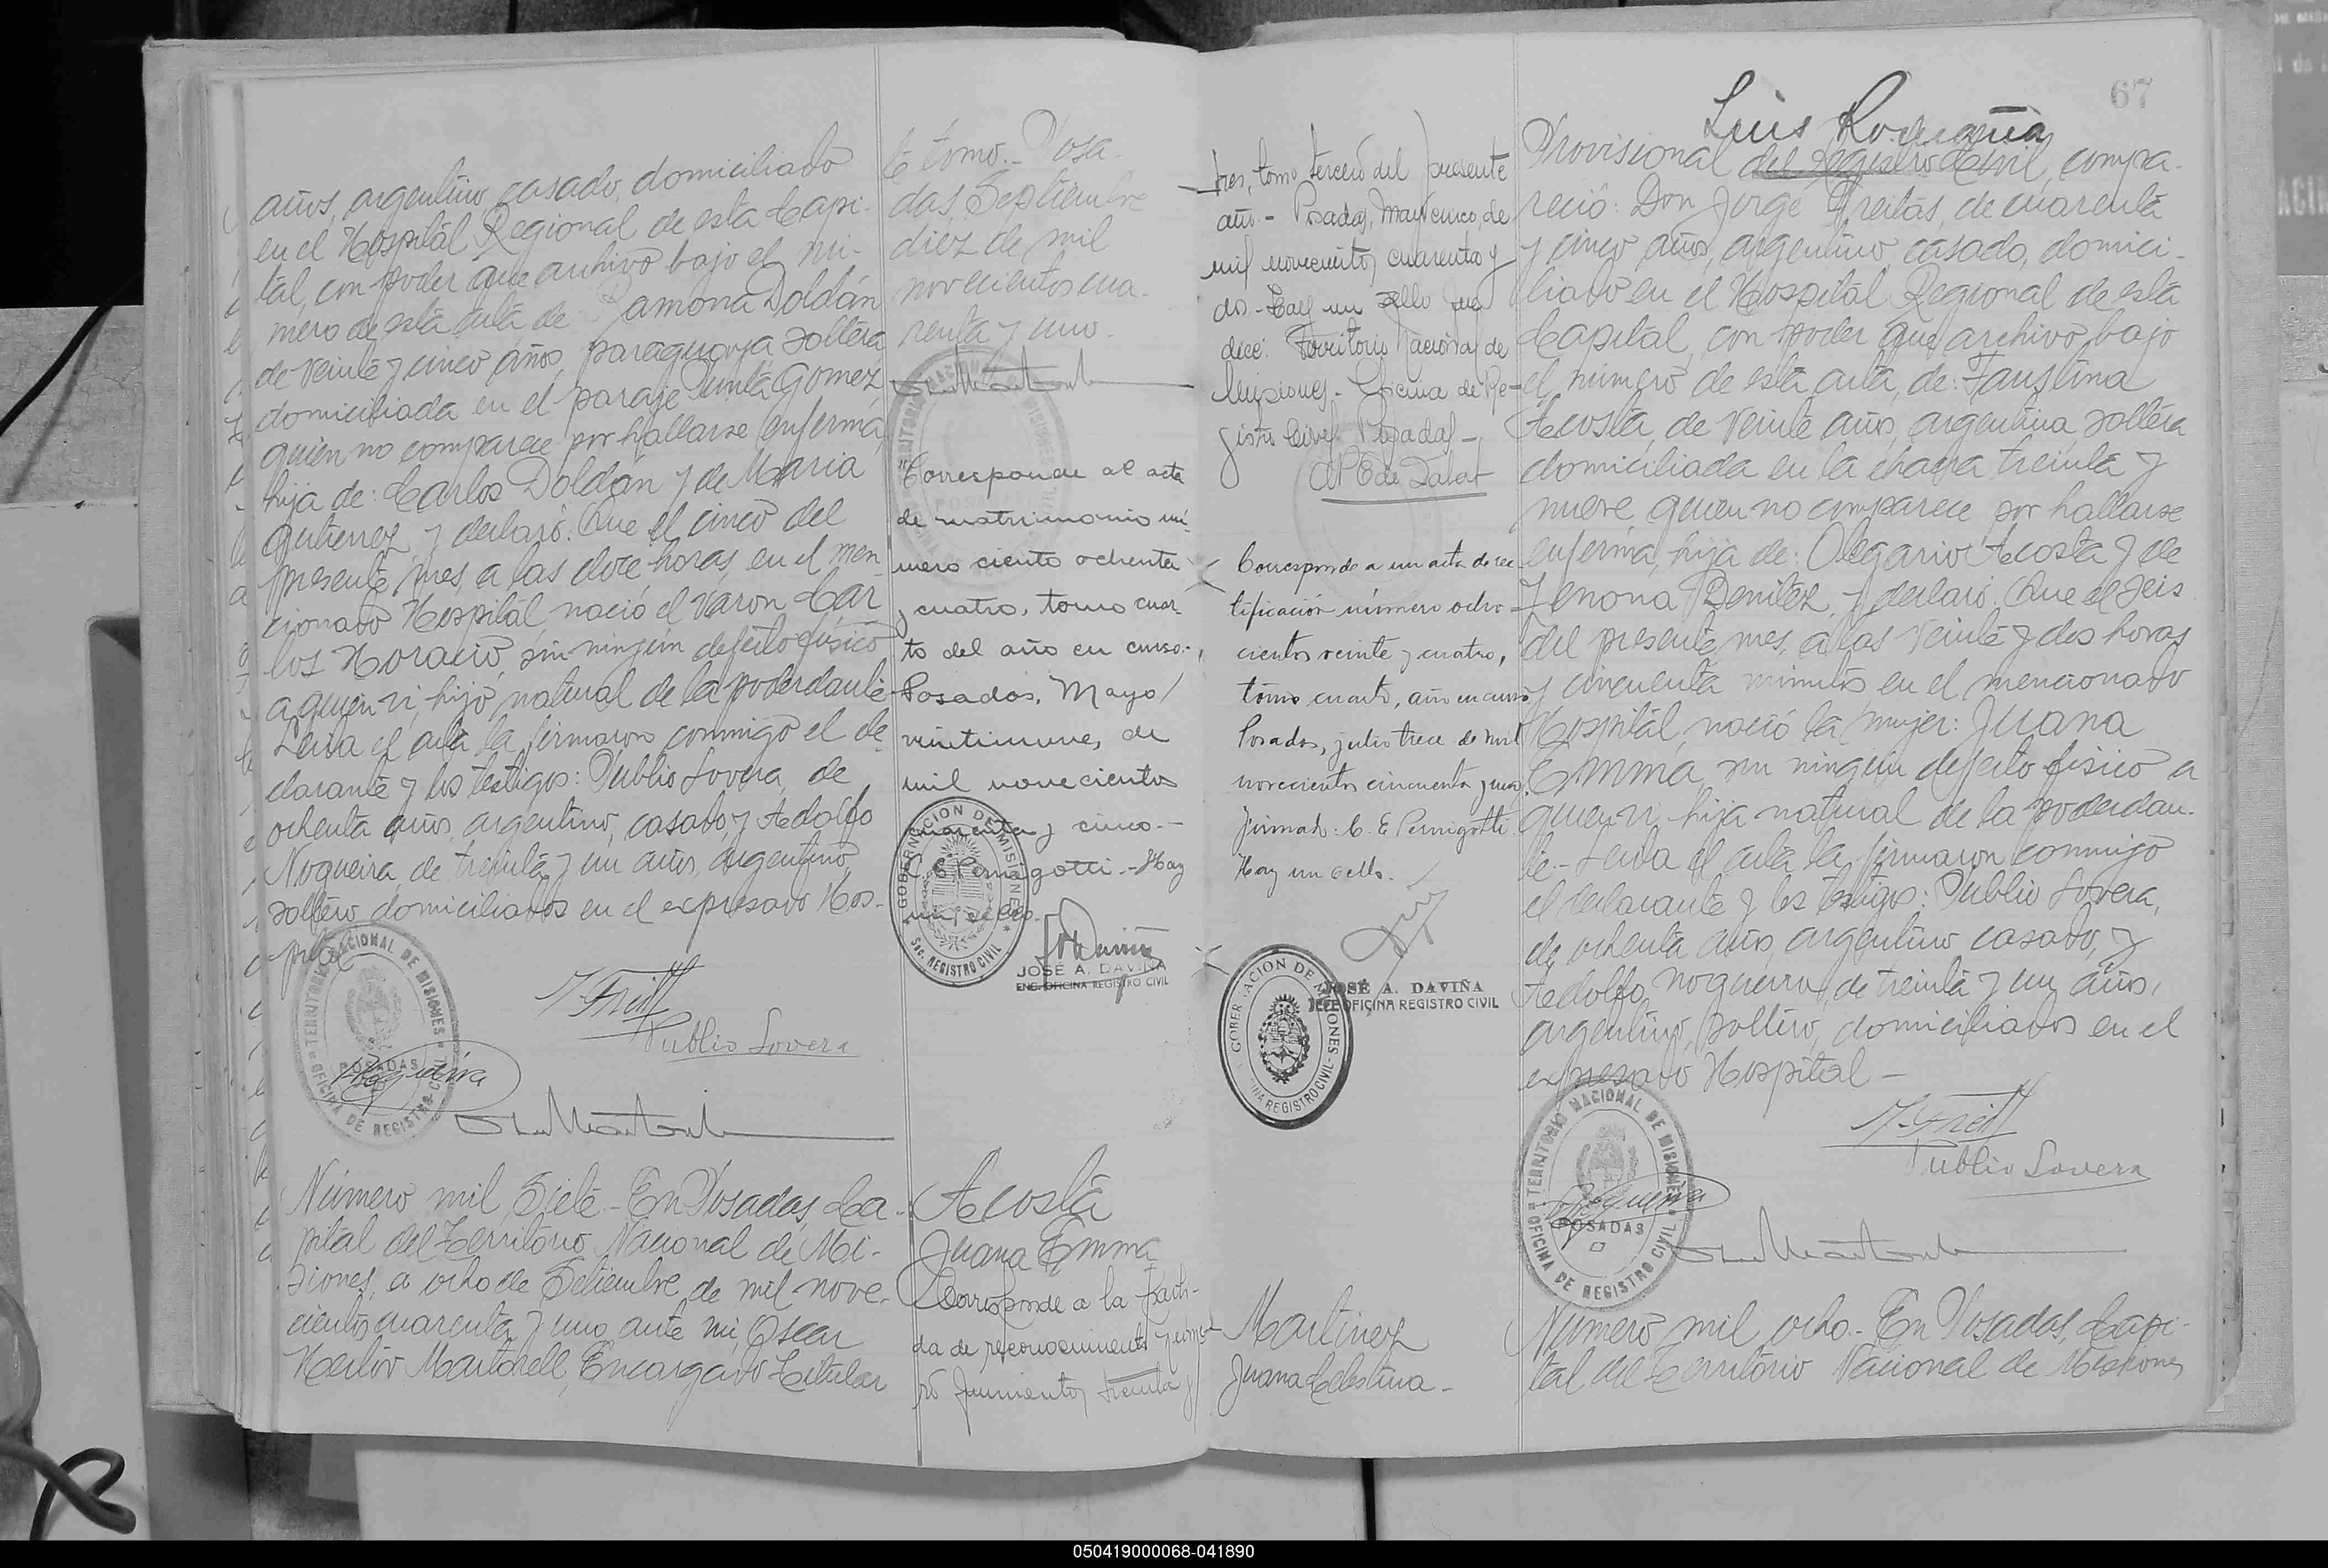 años, argentino, casado, domiciliado
en el Hospital Regional de esta Capi-
tal, con poder que archivo bajo el nú-
mero de esta acta de: Ramona Doldán
de veinte y cinco años, paraguaya soltera
domiciliada en el paraje Punta Gomez
quien no comparece por hallarse enferma,
hija de: Carlos Doldán y de Maria
Gutierrez, y declaró: Que el cinco del
presente mes, a las doce horas, en el men-
cionado Hospital nació el varon Car-
los Horacio, sin ningún defecto físico
a quien vi, hijo natural de la poderdante
Leida el acta la firmaron conmigo el de-
clarante y los testigos: Publio Lovera, de
ochenta años, argentino, casado, y Adolfo
Nogueira de treinta y un años, argentino,
soltero, domiciliados en el expresado Hos-
pital
Publio Lovera
TERRITORIO NACIONAL DE MISIONES
POSADAS
OFICINA DE REGISTRO CIVIL
Número mil Siete.- En Posadas, Ca-
pital del Territorio Nacional de Mi-
siones, a ocho de Setiembre de mil nove-
cientos cuarenta y uno, ante mi, Oscar
Martorell, Encargado Titular
te tomo.- Posa-
das, Septiembre
diez de mil
novecientos cua-
renta y uno.
Corresponde al acta
de matrimonio nú-
mero ciento ochenta
y cuatro, tomo cuar-
to del año en curso.-
Posadas, Mayo
veintinueve, de
mil novecientos
cuarenta y cinco.-
C. E. Pernigotti.- Hay
un sello.
GOBERNACION DE MISIONES
Sec. REGISTRO CIVIL
JOSÉ A. DAVIÑA
ENC. OFICINA REGISTRO CIVIL
Acosta
Juana Emma
Corresponde a la parti-
da de reconocimiento número
quinientos treinta y
67
Luis
tres, tomo tercero del presente
año.- Posadas, Mayo cinco, de
mil novecientos cuarenta y
dos.- Hay un sello que
dice: Territorio Nacional de
Misiones.- Oficina de Re-
gistro Civil Posadas.-
Corresponde a un acta de rec-
tificación número ocho-
cientos veinte y cuatro,
tomo cuarto, año en curso
Posadas, julio trece de mil
novecientos cincuenta y uno.
firmado: C. E. Pernigotti.
Hay un sello.
JOSÉ A. DAVIÑA
JEFE OFICINA REGISTRO CIVIL
GOBERNACION DE MISIONES
REGISTRO CIVIL
Martinez
Juana Celestina.-
Provisional del Registro Civil, compa-
reció: Don Jorge Freitas, de cuarenta
y cinco años, argentino, casado, domici-
liado en el Hospital Regional de esta
Capital, con poder que archivo, bajo
el número de esta acta, de: Faustina
Acosta, de veinte años, argentina, soltera
domiciliada en la chacra treinta y
nueve, quien no comparece por hallarse
enferma, hija de: Olegario Acosta y de
Zenona Benitez, y declaró: Que el seis
del presente mes, a las veinte y dos horas
y cincuenta minutos en el mencionado
Hospital, nació la mujer: Juana
Emma, sin ningún defecto físico a
quien vi, hija natural de la poderdan-
te.- Leida el acta la firmaron conmigo
el declarante y los testigos: Publio Lovera,
de ochenta años, argentino casado, y
Adolfo Nogueira, de treinta y un años,
argentino, soltero, domiciliados en el
expresado Hospital -
Publio Lovera
TERRITORIO NACIONAL DE MISIONES
POSADAS
OFICINA DE REGISTRO CIVIL
Número mil ocho.- En Posadas, Capi-
tal del Territorio Nacional de Misiones
050419000068-041890